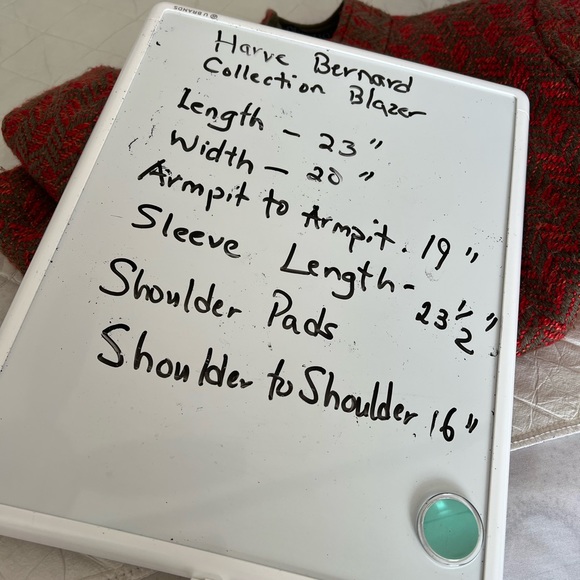 U BRANDS
Harve Bernard
Collection Blazer
Length - 23"
Width - 20"
Armpit to Armpit. 19"
Sleeve Length - 23 1/2"
Shoulder Pads
Shoulder to Shoulder. 16"